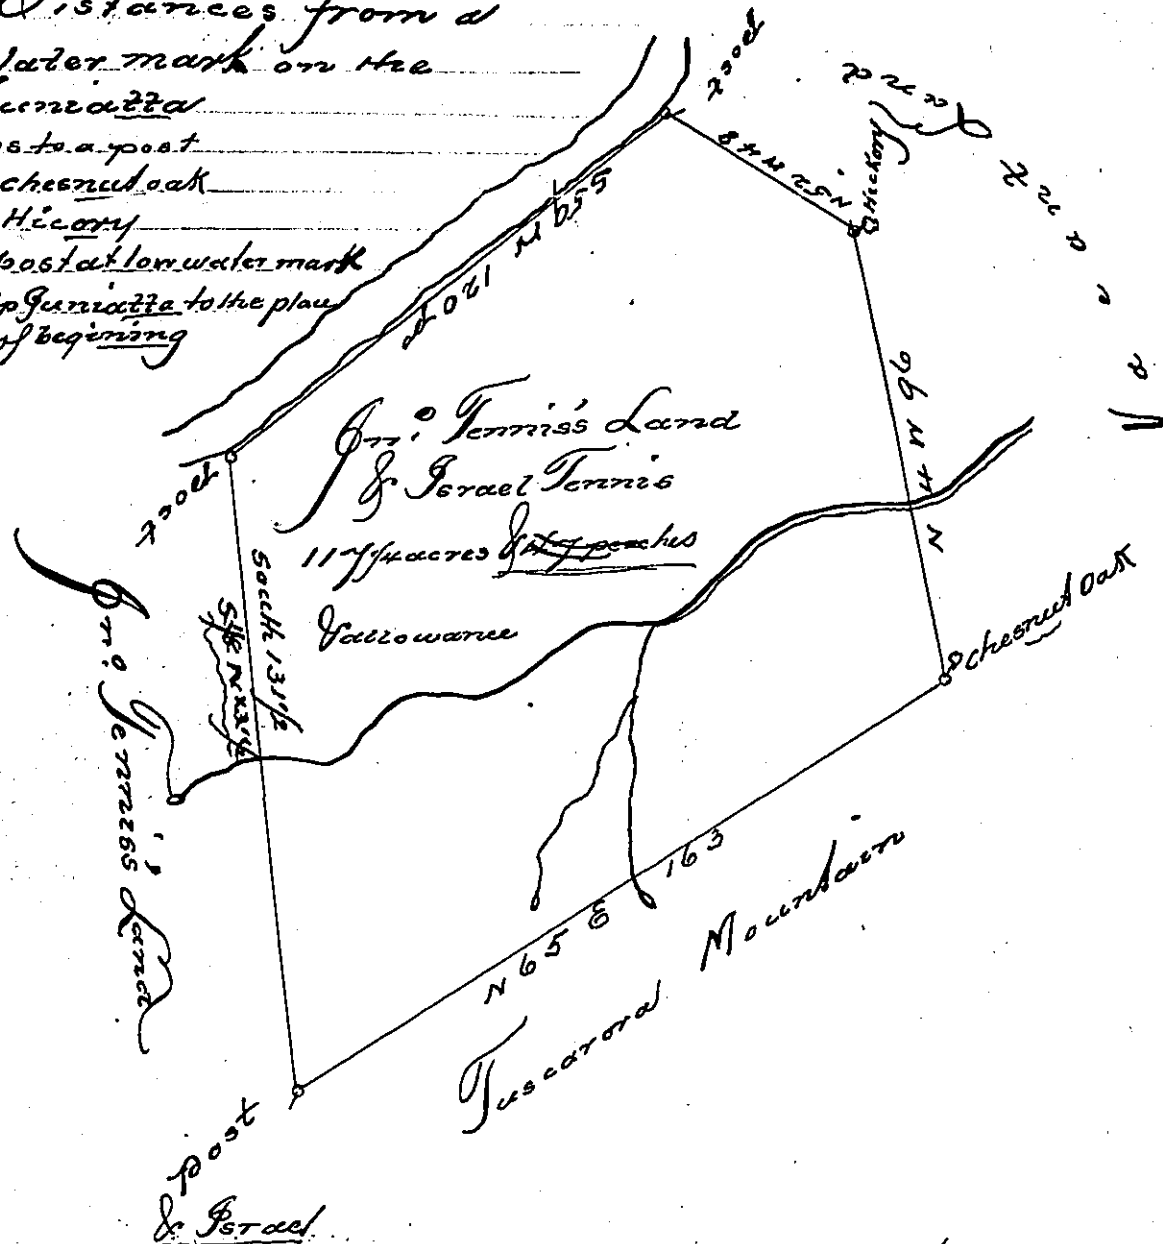 Distances from a
water mark on the
Juniatta
to a post
chesnut oak
Hicory
post at low water mark
up Juniatta to the place
of begining
Post
N 52 W 48
Hickory
Vacant Land
S 59 W 120 P
N 4 W 96
Jno. Tennis's Land
& Israel Tennis
117 1/4 acres &
& allowance
Post
South 131 1/2
Jno. Tennis's Land
chesnut Oak
N 65 E 163
Tuscarora Mountain
Post
& Israel